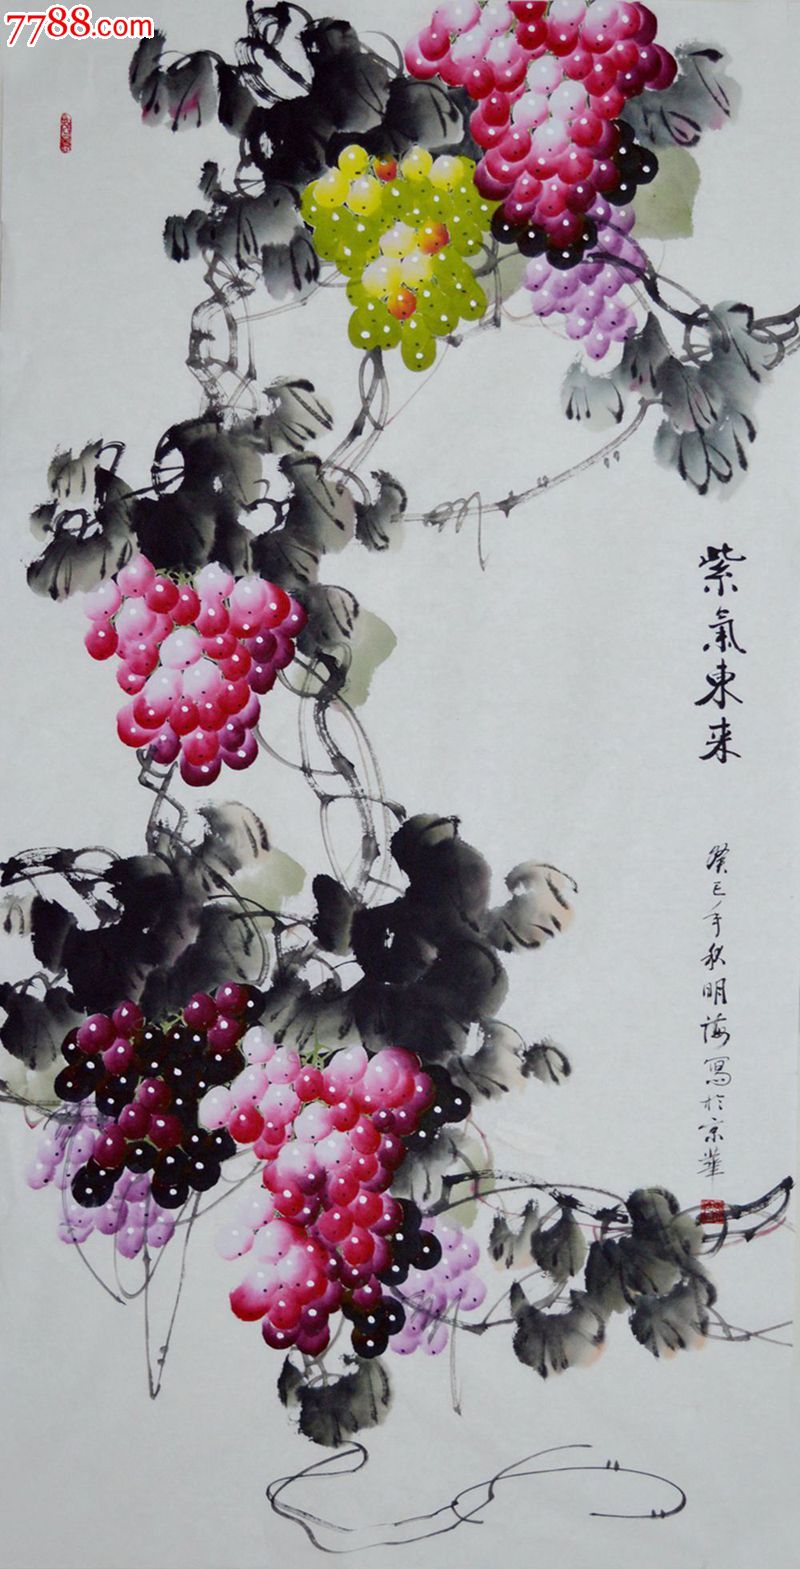 7788.com
紫氣東来
癸巳年秋明海寫於京華